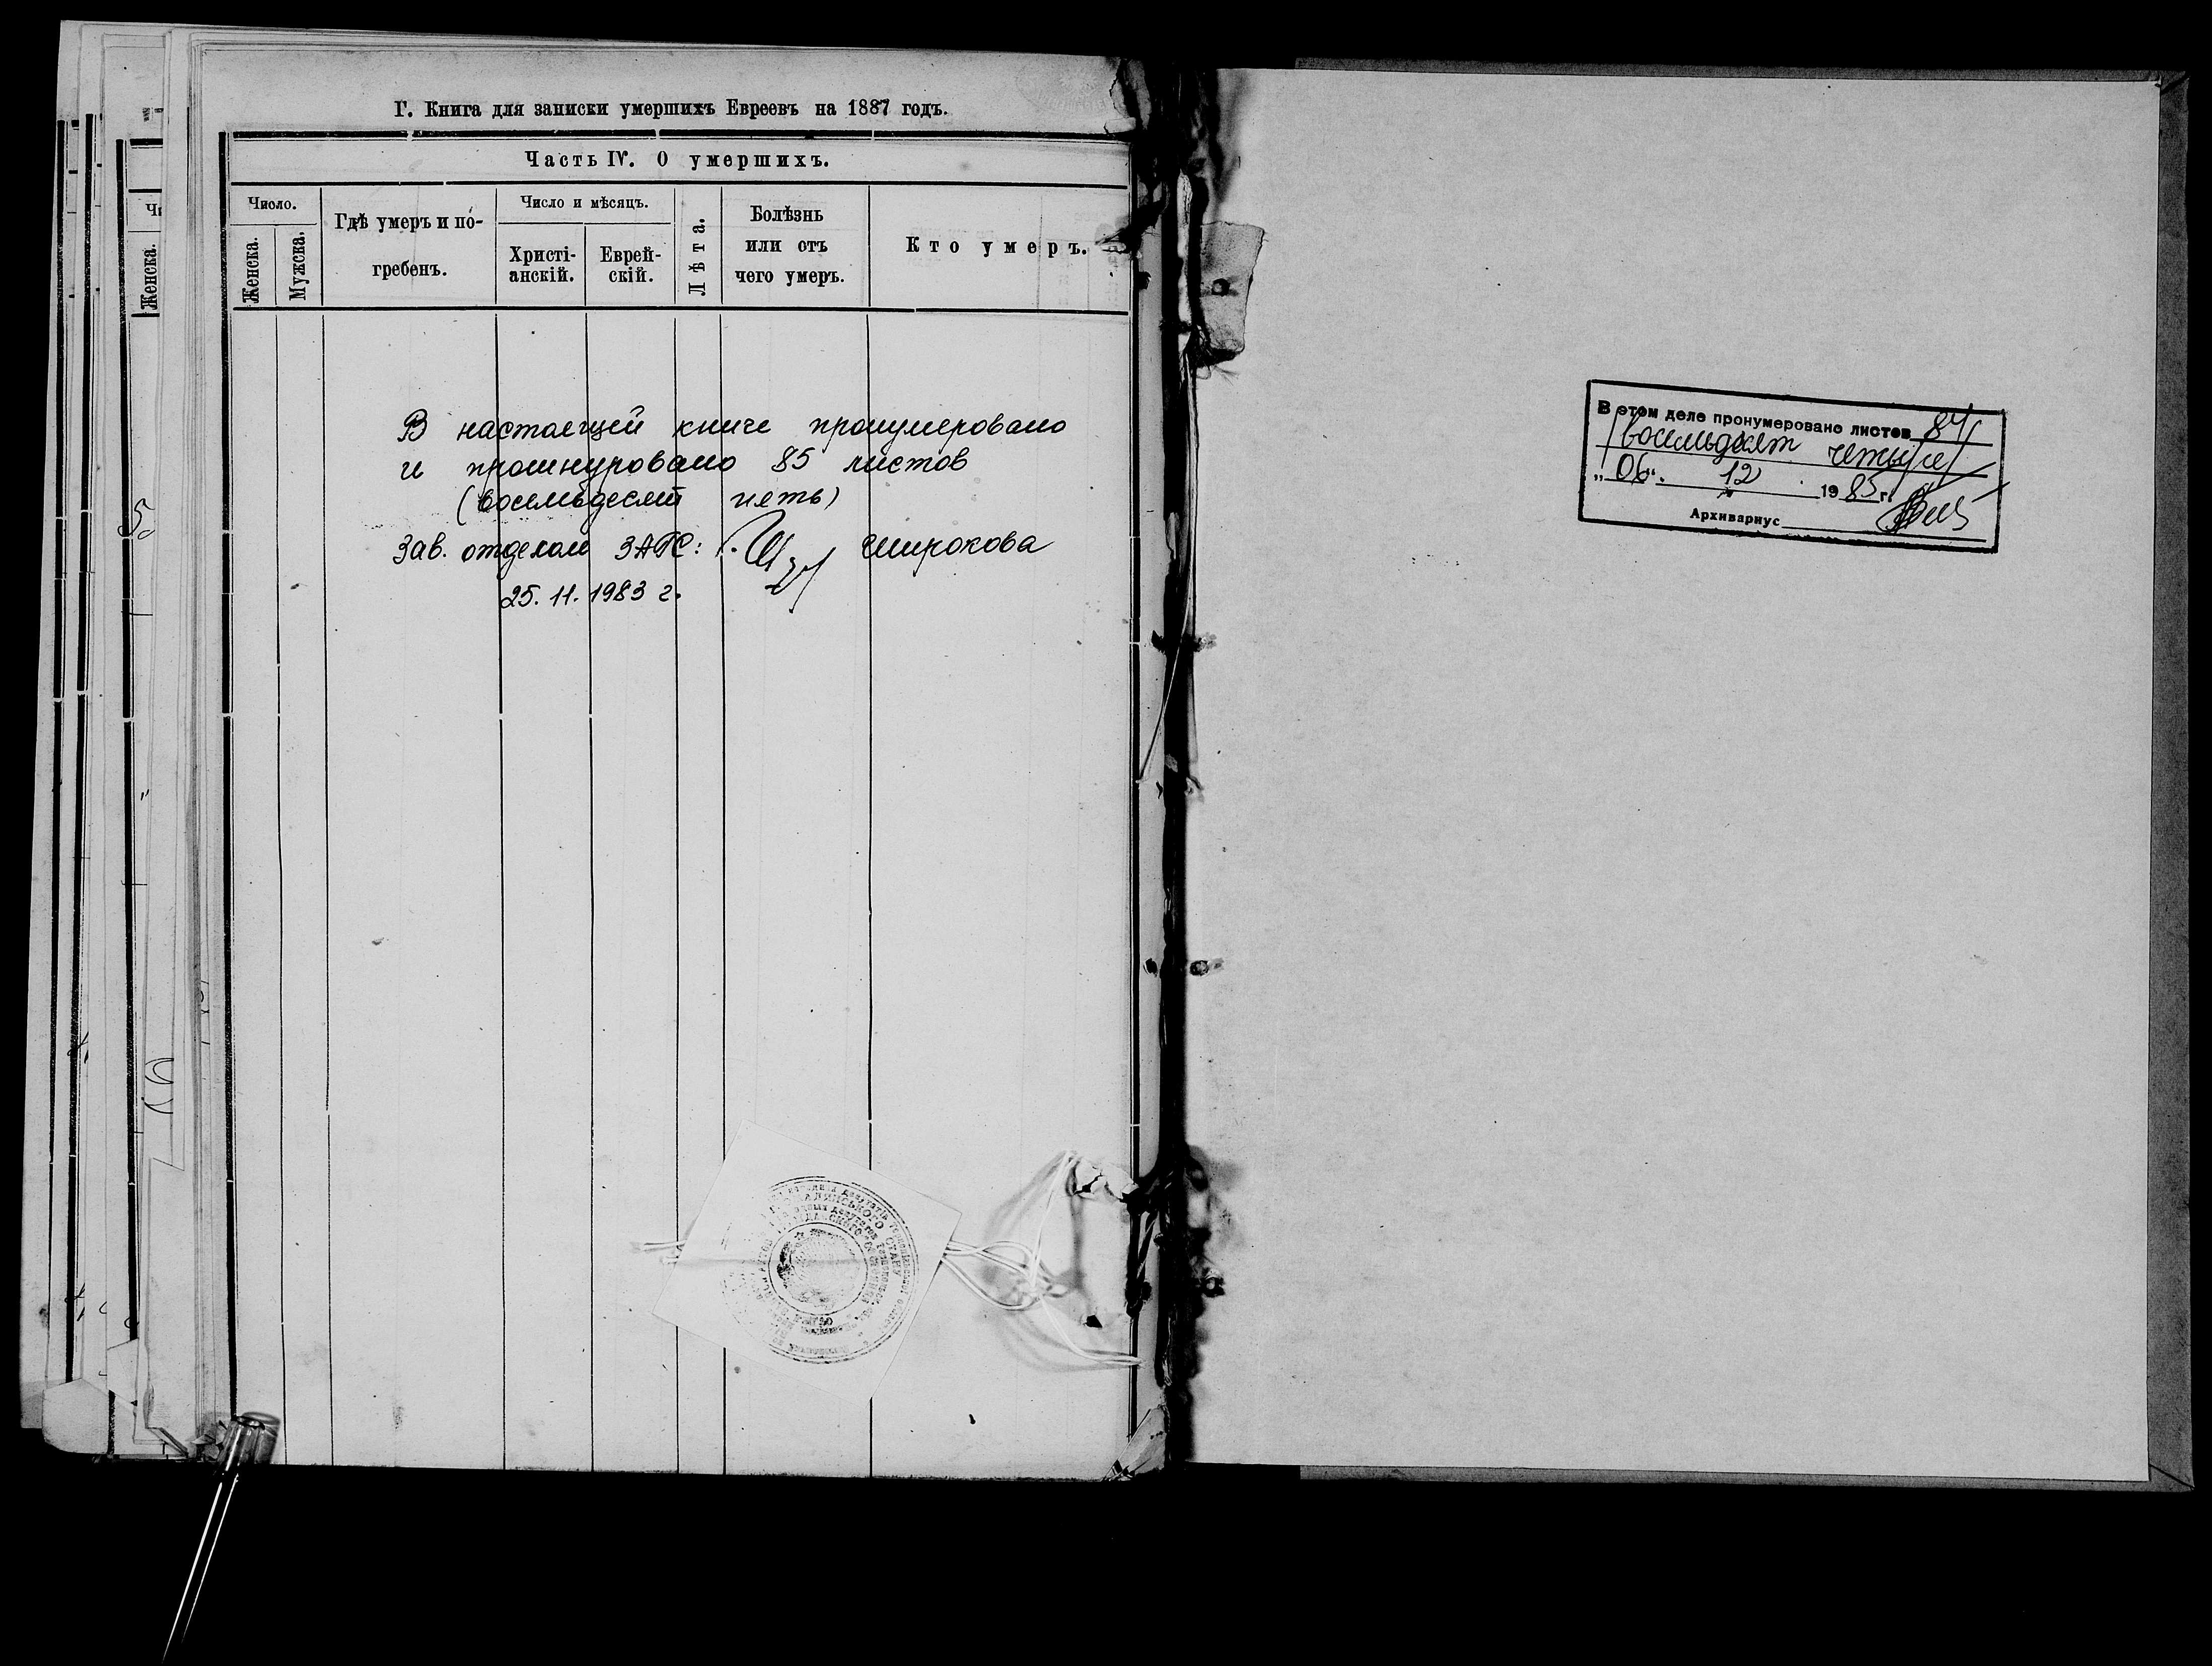 Г. Книга для записки умершихъ Евреевъ на 1887 годъ.
Часть IV. О умершихъ.
Число.
Женска.
Мужска.
Гдѣ умеръ и по-
гребенъ.
Число и мѣсяцъ.
Христі-
анскій.
Еврей-
скій.
Лѣта.
Болѣзнь
или отъ
чего умеръ.
Кто умеръ.
В настоящей книге пронумеровано
и прошнуровано 85 листов
(восемьдесят пять)
Зав. отделом ЗАГС: Широкова
25.11.1983 г.
Женска.
В этом деле пронумеровано листов 84
(восемьдесят четыре)
„06“. 12 1985 г.
Архивариус